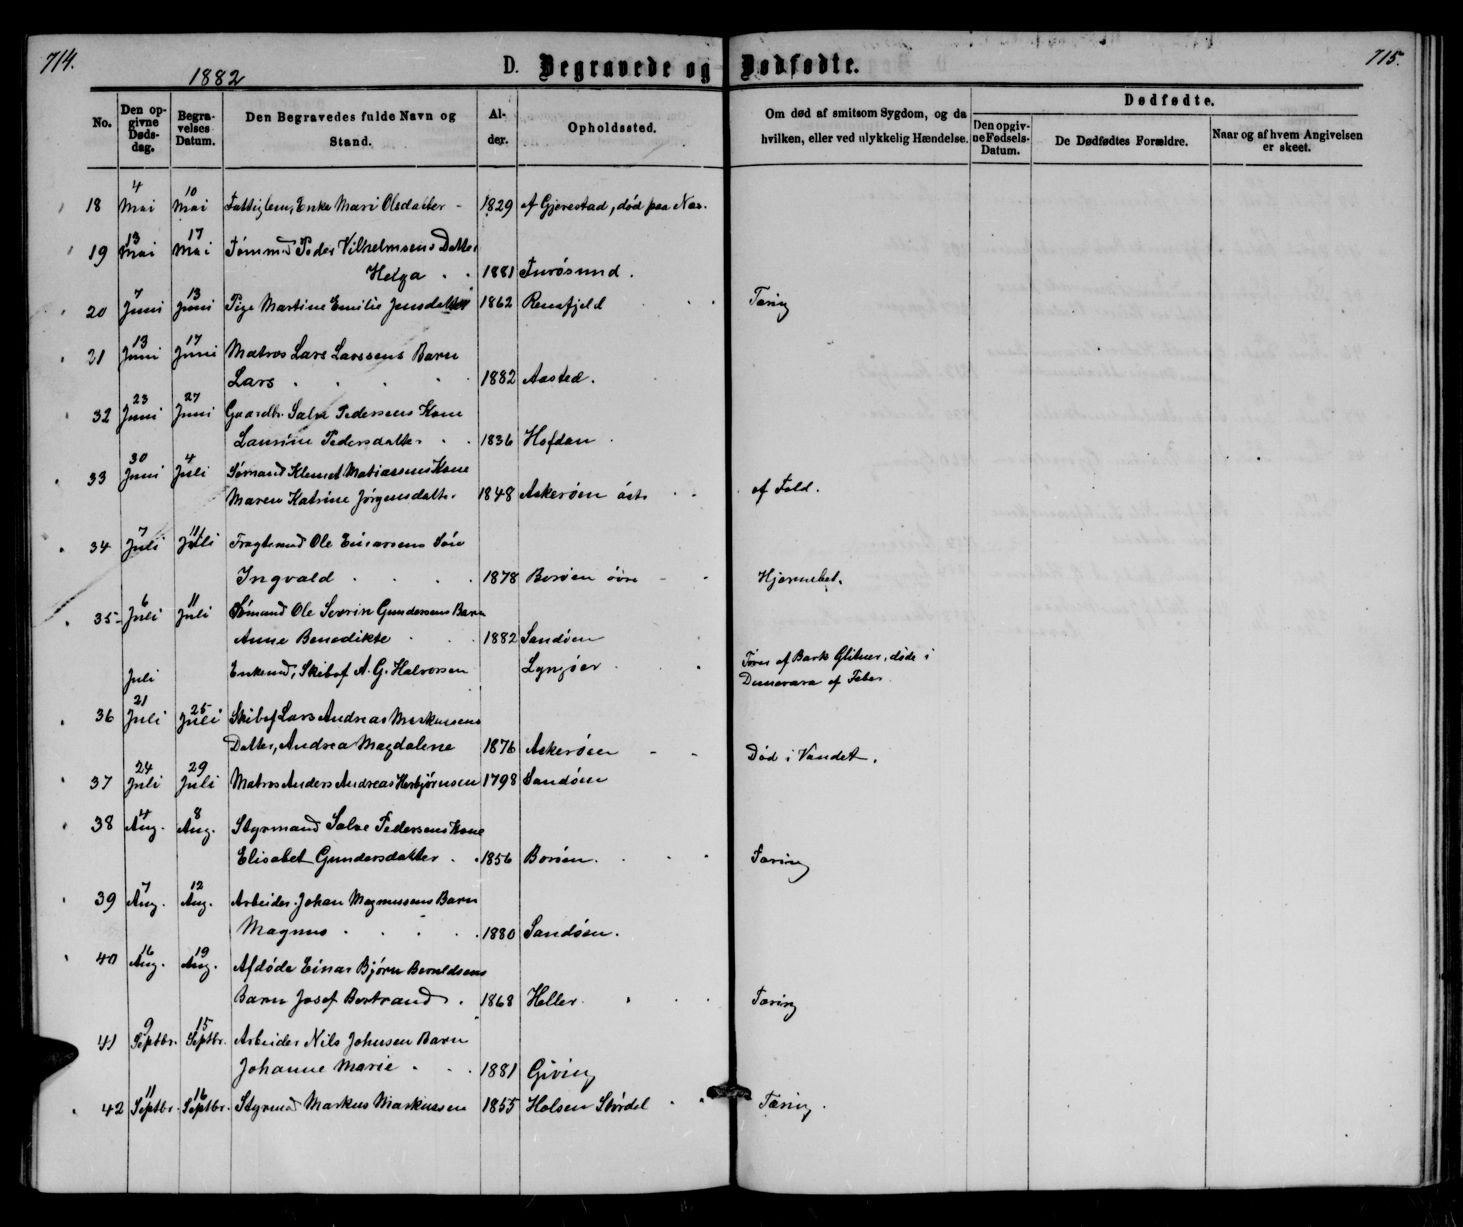 714.
1882
D. Begravede og Dødfødte.
715.
No.
Den opgivne Dødsdag.
Begravelses Datum.
Den Begravedes fulde Navn og Stand.
Alder.
Opholdssted.
Om død af smitsom Sygdom, og da hvilken, eller ved ulykkelig Hændelse.
Dødfødte.
Den opgivne Fødsels-Datum.
De Dødfødtes Forældre.
Naar og af hvem Angivelsen er skeet.
18 4 Mai 10 Mai Fattiglem, Enke Mari Olsdatter - 1829 Af Gjerestad, død paa Næs.
19 13 Mai 17 Mai Tømmd Peder Vilhelmsens Datter
Helga 1881 Furøsund.
20 7 Juni 13 Juni Pige Martine Emilie Jensdatter 1862 Rensfjeld Tæring
21 13 Juni 17 Juni Matros Lars Larssens Barn
Lars 1882 Aasted.
32 23 Juni 27 Juni Gaardbr. Salve Pedersens Kone
Laurine Pedersdatter 1836 Hofdan
33 30 Juni 4 Juli Sømand Klemet Matiassens Kone
Maren Katrine Jörgensdatter 1848 Askerøen öst af Fald.
34 7 Juli 11 Juli Fragtemand Ole Einarsens Søn
Ingvald 1878 Borøen övre Hjernebet.
35 6 Juli 11 Juli Sömand Ole Severin Gundersens Barn
Anne Benedikte 1882 Sandøen
Juli Enkemd, Skibsf. A. G. Halvorsen Lyngøer Fører af Bark Glitner, døde i
Demerara af Feber
36 21 Juli 25 Juli Skibsf Lars Andreas Markussens
Datter, Andrea Magdalene 1876 Askerøen Død i Vandet.
37 24 Juli 29 Juli Matros Anders Andreas Herbjørnsen 1798 Sandøen
38 4 Aug. 8 Aug. Styrmand Salve Pedersens Kone
Elisabet Gundersdatter 1856 Borøen. Tæring
39 7 Aug. 12 Aug. Arbeider Johan Magnussens Barn
Magnus 1880 Sandøen.
40 16 Aug. 19 Aug. Afdøde Einar Bjørn Beruldsens
Barn Josef Bertrand 1868 Heller Tæring
41 9 Septbr. 15 Septbr. Arbeider Nils Johnsen Barn
Johanne Marie 1881 Giving
42 11 Septbr. 16 Septbr. Styrmd Markus Markussen 1855 Holsen Stördel Tæring.